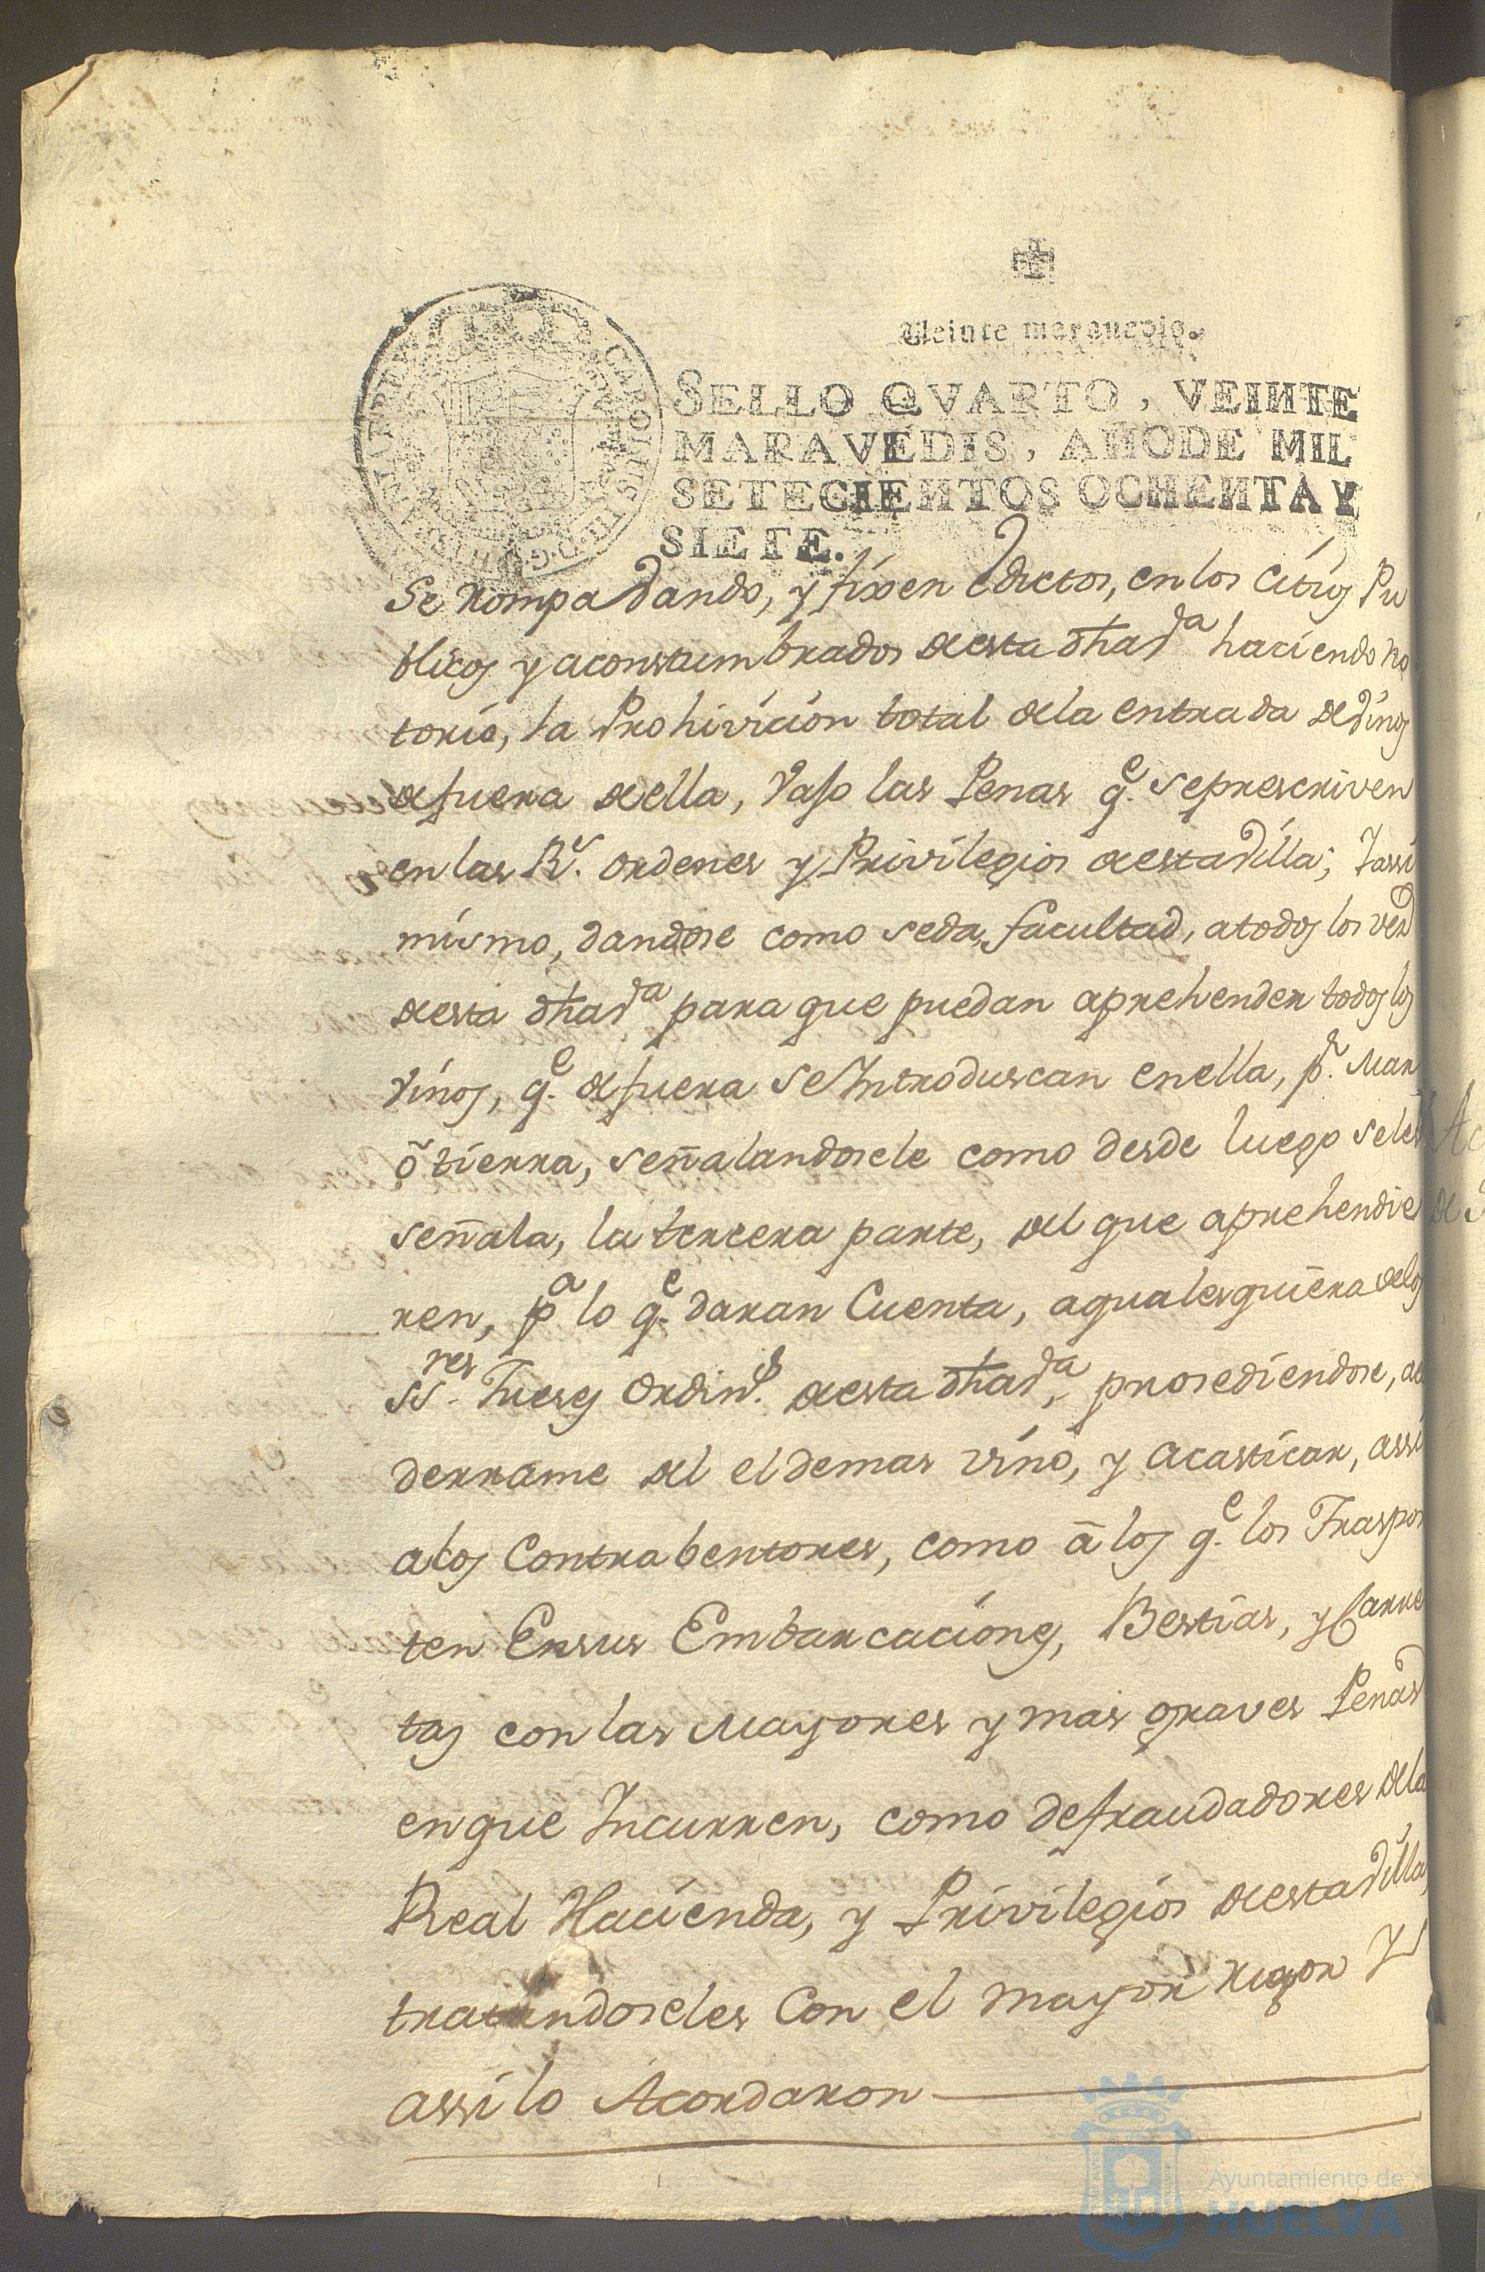 Veinte maravedis.
SELLO QVARTO, VEINTE
MARAVEDIS, AÑODE MIL
SETECIENTOS OCHENTA Y
SIETE.
CAROLUS III D G HISP
Se rompa Vando, y fixen Edictos, en los Citios Pu
blicos y aconstumbrados de esta dhaVª haciendo no
torio, la Prohivicion total dela entrada de Vinos
de fuera de ella, Vajo las Penas q.e se prescriven
en las R.s ordenes y Privilegios de esta Villa; Y assi
mismo, dandose como se da, facultad, a todos los vez
de esta dhaVª para que puedan aprehender todos los
Vinos, q.e de fuera se Introduscan en ella, p.r Mar
õ tierra, señalandosele como desde luego seles
señala, la tercera parte, del que aprehendie
ren, pª lo q.e daran Cuenta, a qualesquiera de los
SS.res Jueses Ordin.s de esta dhaVª, prosediendose, al
derrame del el demas vino, y a casticar, assi
a los Contrabentores, como â los q.e los Traspor
ten En sus Embarcaciones, Bestias, y Carre
tas con las Mayores y mas graves Penas
en que Incurren, como defraudadores dela
Real Hacienda, y Privilegios de esta Villa,
tratandoseles Con el mayor rigor Y
assi lo Acordaron
Ayuntamiento de
HUELVA